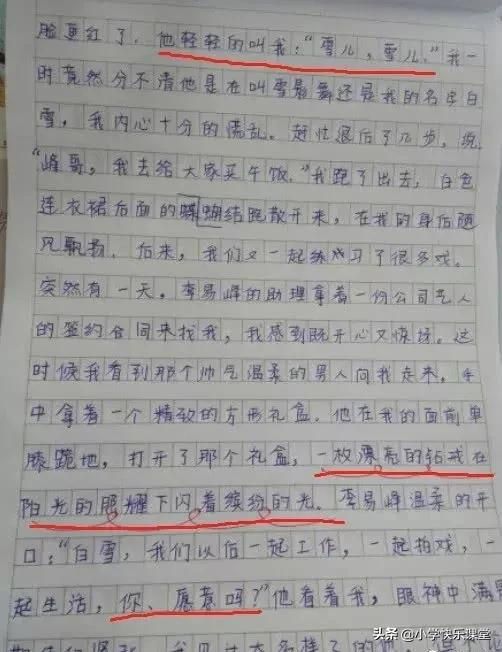 脸更红了，他轻轻的叫我："雪儿，雪儿。"我一
时竟然分不清他是在叫雪最舞还是我的名字白
雪，我内心十分的慌乱。赶忙退后了几步，说，
"峰哥，我去给大家买午饭。"我跑了出去，白色
连衣裙后面的蝴蝶结跑散开来，在我的身后随
风飘扬。后来，我们又一起练习了很多戏。
突然有一天，李易峰的助理拿着一份公司艺人
的签约合同来找我，我感到既开心又惊讶。这
时候我看到那个帅气温柔的男人向我走来，手
中拿着一个精致的方形礼盒。他在我的面前单
膝跪地，打开了那个礼盒，一枚漂亮的钻戒在
阳光的照耀下闪着缤纷的光。李易峰温柔的开
口："白雪，我们以后一起工作，一起拍戏，一
起生活，你、愿意吗？"他看着我，眼神中满是
头条 @小学快乐课堂